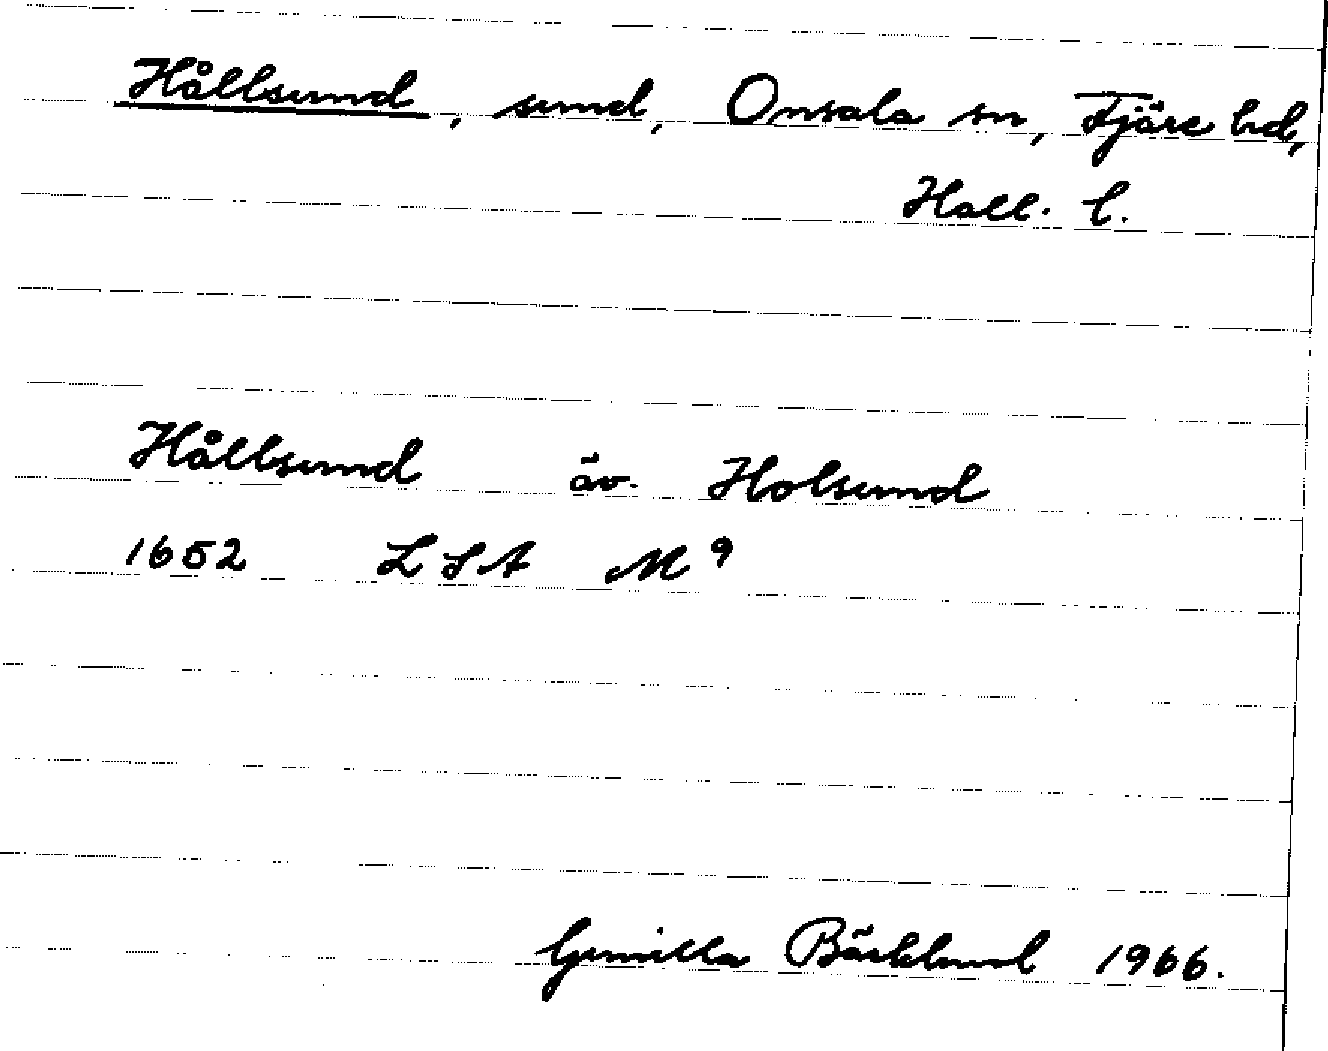 Hållsund, sund, Onsala sn, Fjäre hd,
Hall. l.
Hållsund äv. Holsund
1652 LSA M9
Gunilla Bäcklund 1966.